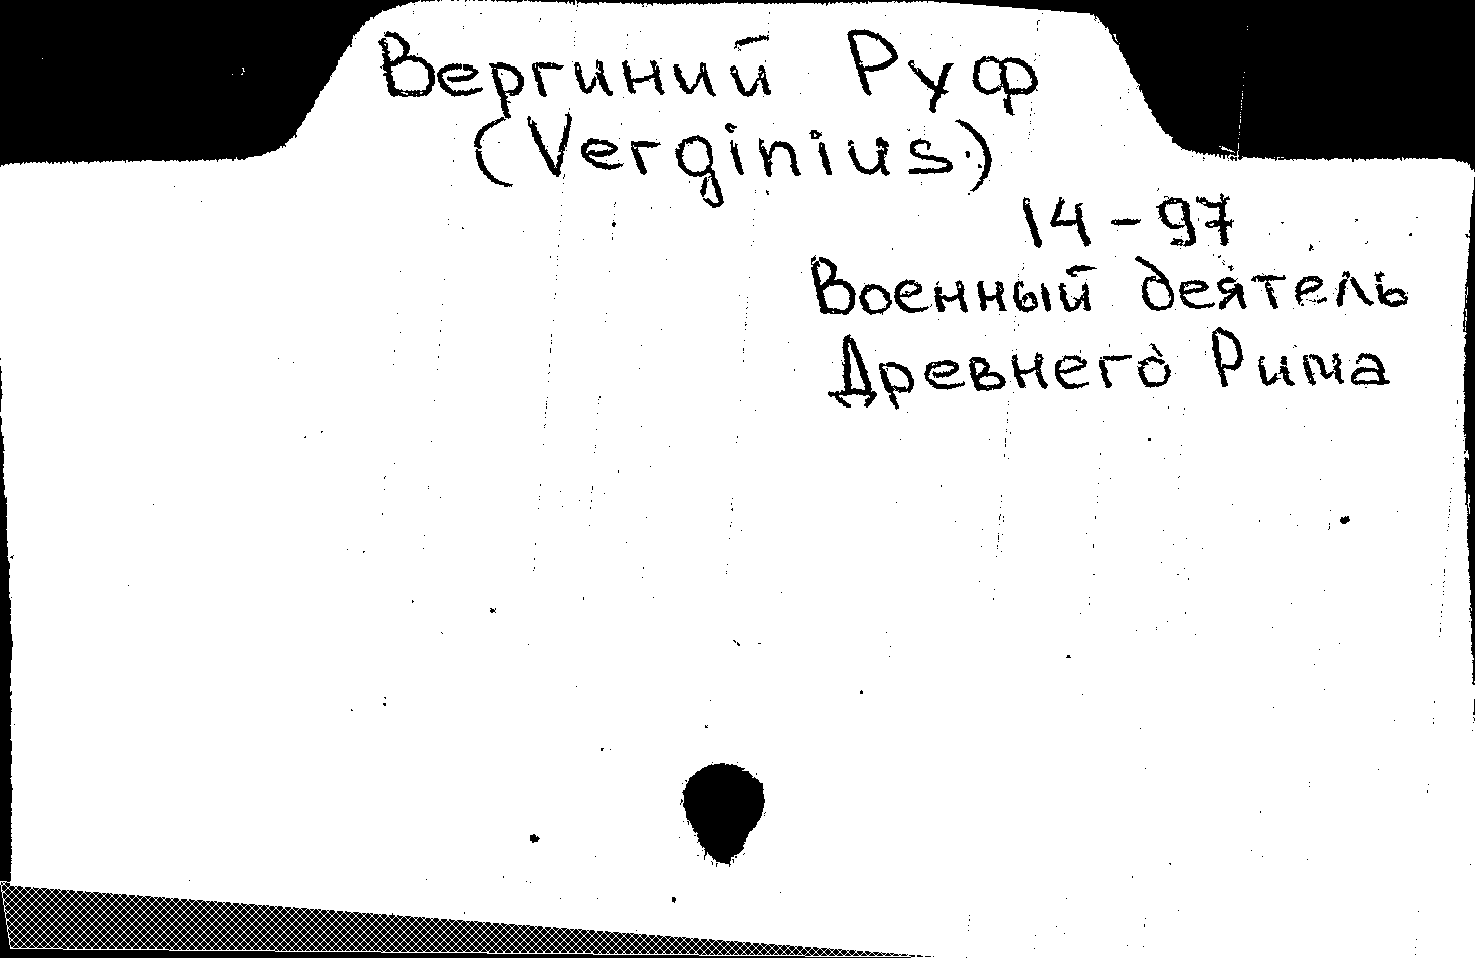 Вергиний Руф
(Verginius)
14-97
Военный деятель
Древнего Рима